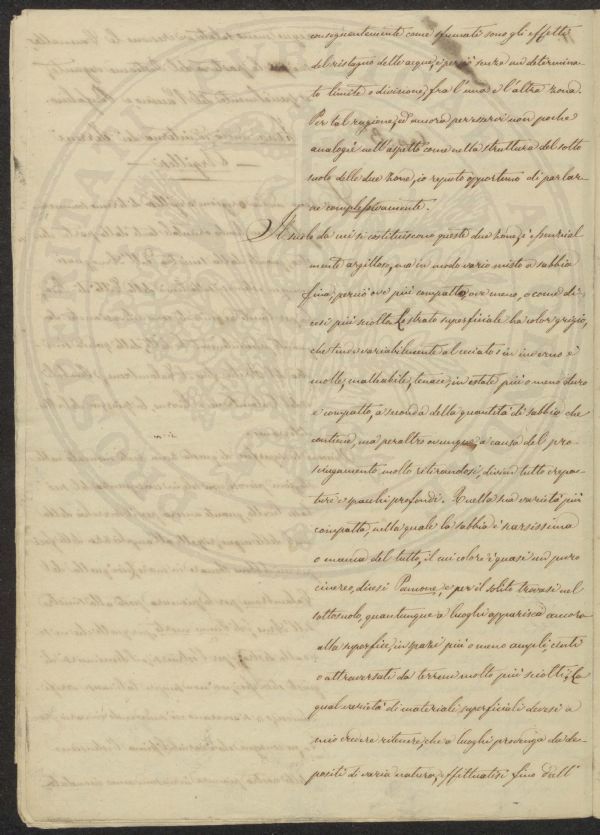 conseguentemente come sfumati sono gli effetti
del ristagno delle acque, e perciò senza un determina-
to limite o divisione, fra l'una e l'altra zona.
Per tal ragione, ed ancora per esservi non poche
analogie nell'aspetto come nella struttura del sotto
suolo delle due zone, io reputo opportuno di parlar-
ne complessivamente.
Il suolo da cui si costituiscono queste due zone, è essenzial
mente argilloso, ma in modo vario misto a sabbia
fina; perciò ove più compatto, ove meno, o come di-
cesi più sciolto. Lo strato superficiale ha color grigio,
che tira variabilmente al ; in inverno è
molle, malleabile, tenace; in estate più o meno duro
e compatto, a seconda della quantità di sabbia che
contiene, ma peraltro ovunque, a causa del pro-
sciugamento molto retirandosi, divien tutto crepa-
ture e spacchi profondi. Quella sua varietà più
compatta, nella quale la sabbia è scarsissima
o manca del tutto, il cui colore è quasi un puro
cinereo, dicesi Pancone, e per il solito trovasi nel
sottosuolo, quantunque a luoghi apparisca ancora
alla superfice, in spazi più o meno ampli, cinti
o attraversati da terreni molto più sciolti; La
qual varietà di materiali superficiali devesi a
mio credere ritenere, che a luoghi provenga da de-
positi di varia natura, effettuatisi fino dall'